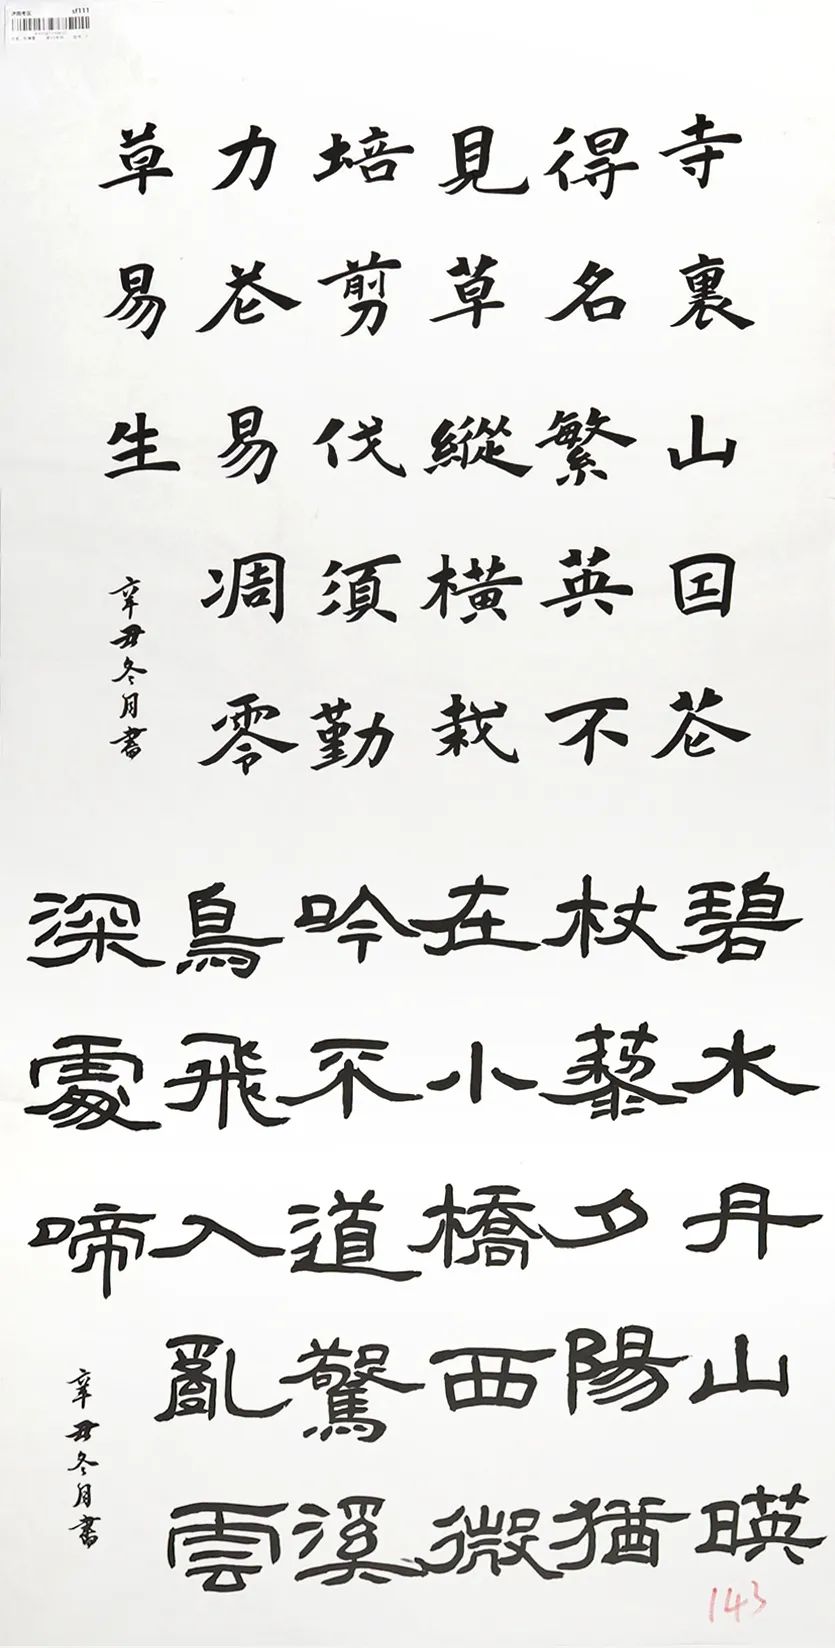 sf111
寺裏山因苍
得名繁英不
見草縱橫栽
培剪伐須勤
力苍易凋零
草易生
辛丑冬月書
碧水丹山暎
杖藜夕陽猶
在小橋西微
吟不道驚溪
鳥飛入亂雲
深處啼
辛丑冬月書
143